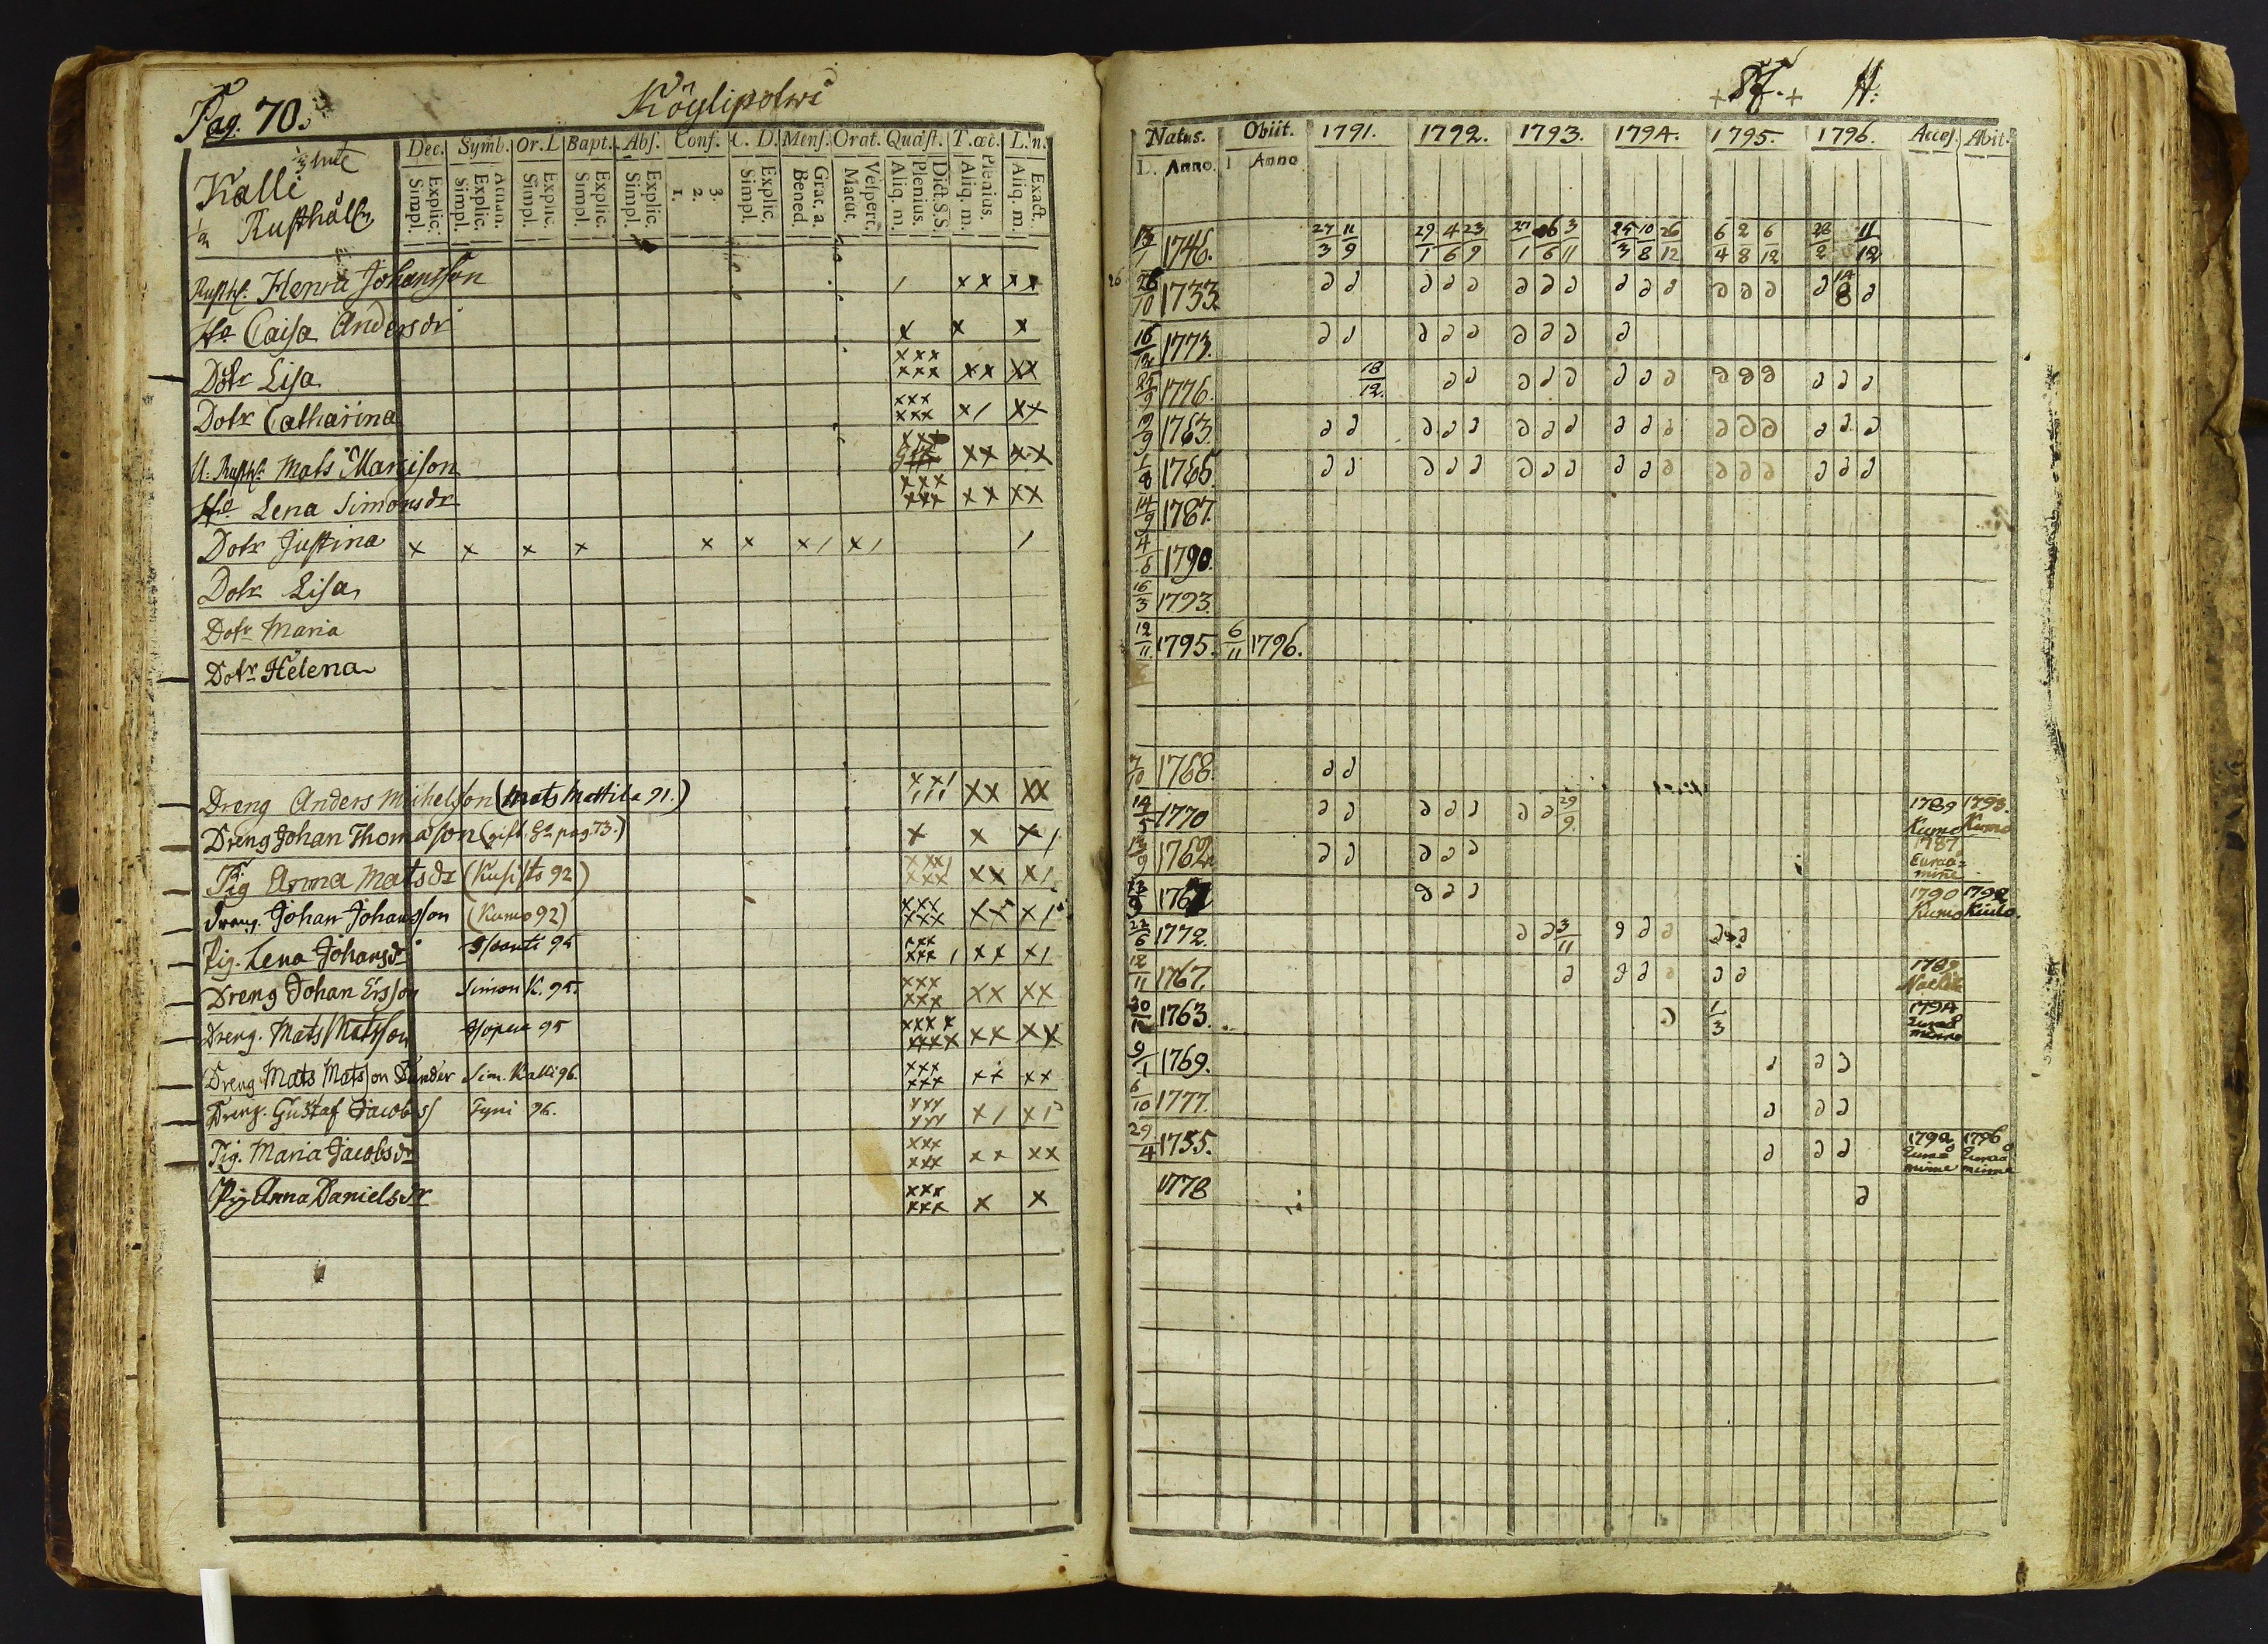 Pag. 70. Köylipolwi
Kalli
1/2 Rusthåll
Dec. Symb. Or. L Bapt. Abs. Conf. C. D. Mens. Orat. Quæst. T. œc. L. n.
Explic. Simpl.
Athan. Explic. Simpl.
Explic. Simpl.
Explic. Simpl.
Explic. Simpl.
3. 2. 1.
Explic. Simpl.
Grat. a. Bened.
Vespert. Matut.
Dict. S.S. Plenius. Aliq. m.
Plenius. Aliq. m.
Exact. Aliq. m.
Rusth. Henric Johansson / x x x x
Ho Caisa Andersdr x x x
Dotr Lisa x x x x x x x x x x
Dotr Catharina x x x x x x x / x x
U. Rusth. Mats x x x x
Ho Lena Simonsdr x x x x x x x x x x
Dotr Justina x x x x x x x / x / /
Dotr Lisa
Dotr Maria
Dotr Helena
Dreng Anders Michelsson (Mats Mattila 91.) x x x x
Dreng Johan Thomasson (gift. pag. 73.) x x x /
Pig Anna Matsdr (Kusisto 92) x x x /
Dreng. Johan Johansson (Kumo 92) x x x x x x x x x /
Pig. Lena Johansdr 95 x x x x x x / x x x /
Dreng Johan Ersson Simon K. 95. x x x x x x x x x x
Dreng. Mats Matsson 95 x x x x x x x x x x x x
Dreng Mats Matsson Sim. Kalli 96. x x x x x x x x x x
Dreng. Gustaf Jacobss Tyni 96. x x x x x x x / x /
Pig. Maria Jacobsdr x x x x x x x x x x
Pig Anna Danielsdr x x x x x x x x
Natus. Obiit. 1791. 1792. 1793. 1794. 1795. 1796. Acces. Abit.
D. Anno. Anno
1746. 27/3 11/9 29/1 4/6 23/9 27/1 6/6 3/11 25/3 10/8 26/12 6/4 2/8 6/12 28/2 11/12
26/10 1733 14/8
16/12 1773.
25/9 1776. 18/12.
1763.
1/8 1765.
14/9 1787.
4/6 1790.
16/3 1793.
12/11. 1795. 6/11 1796.
7/10 1768.
14/5 1770 29/9. 1789 Kumo 1793. Kumo
1762 1787 Euraominne
1790 Kumo
22/6 1772. 3/11
18/11 1767. 1789
1763. 1/3 1794
9/1 1769.
6/10 1777.
29/4 1755. 1796 Euraominne
1778